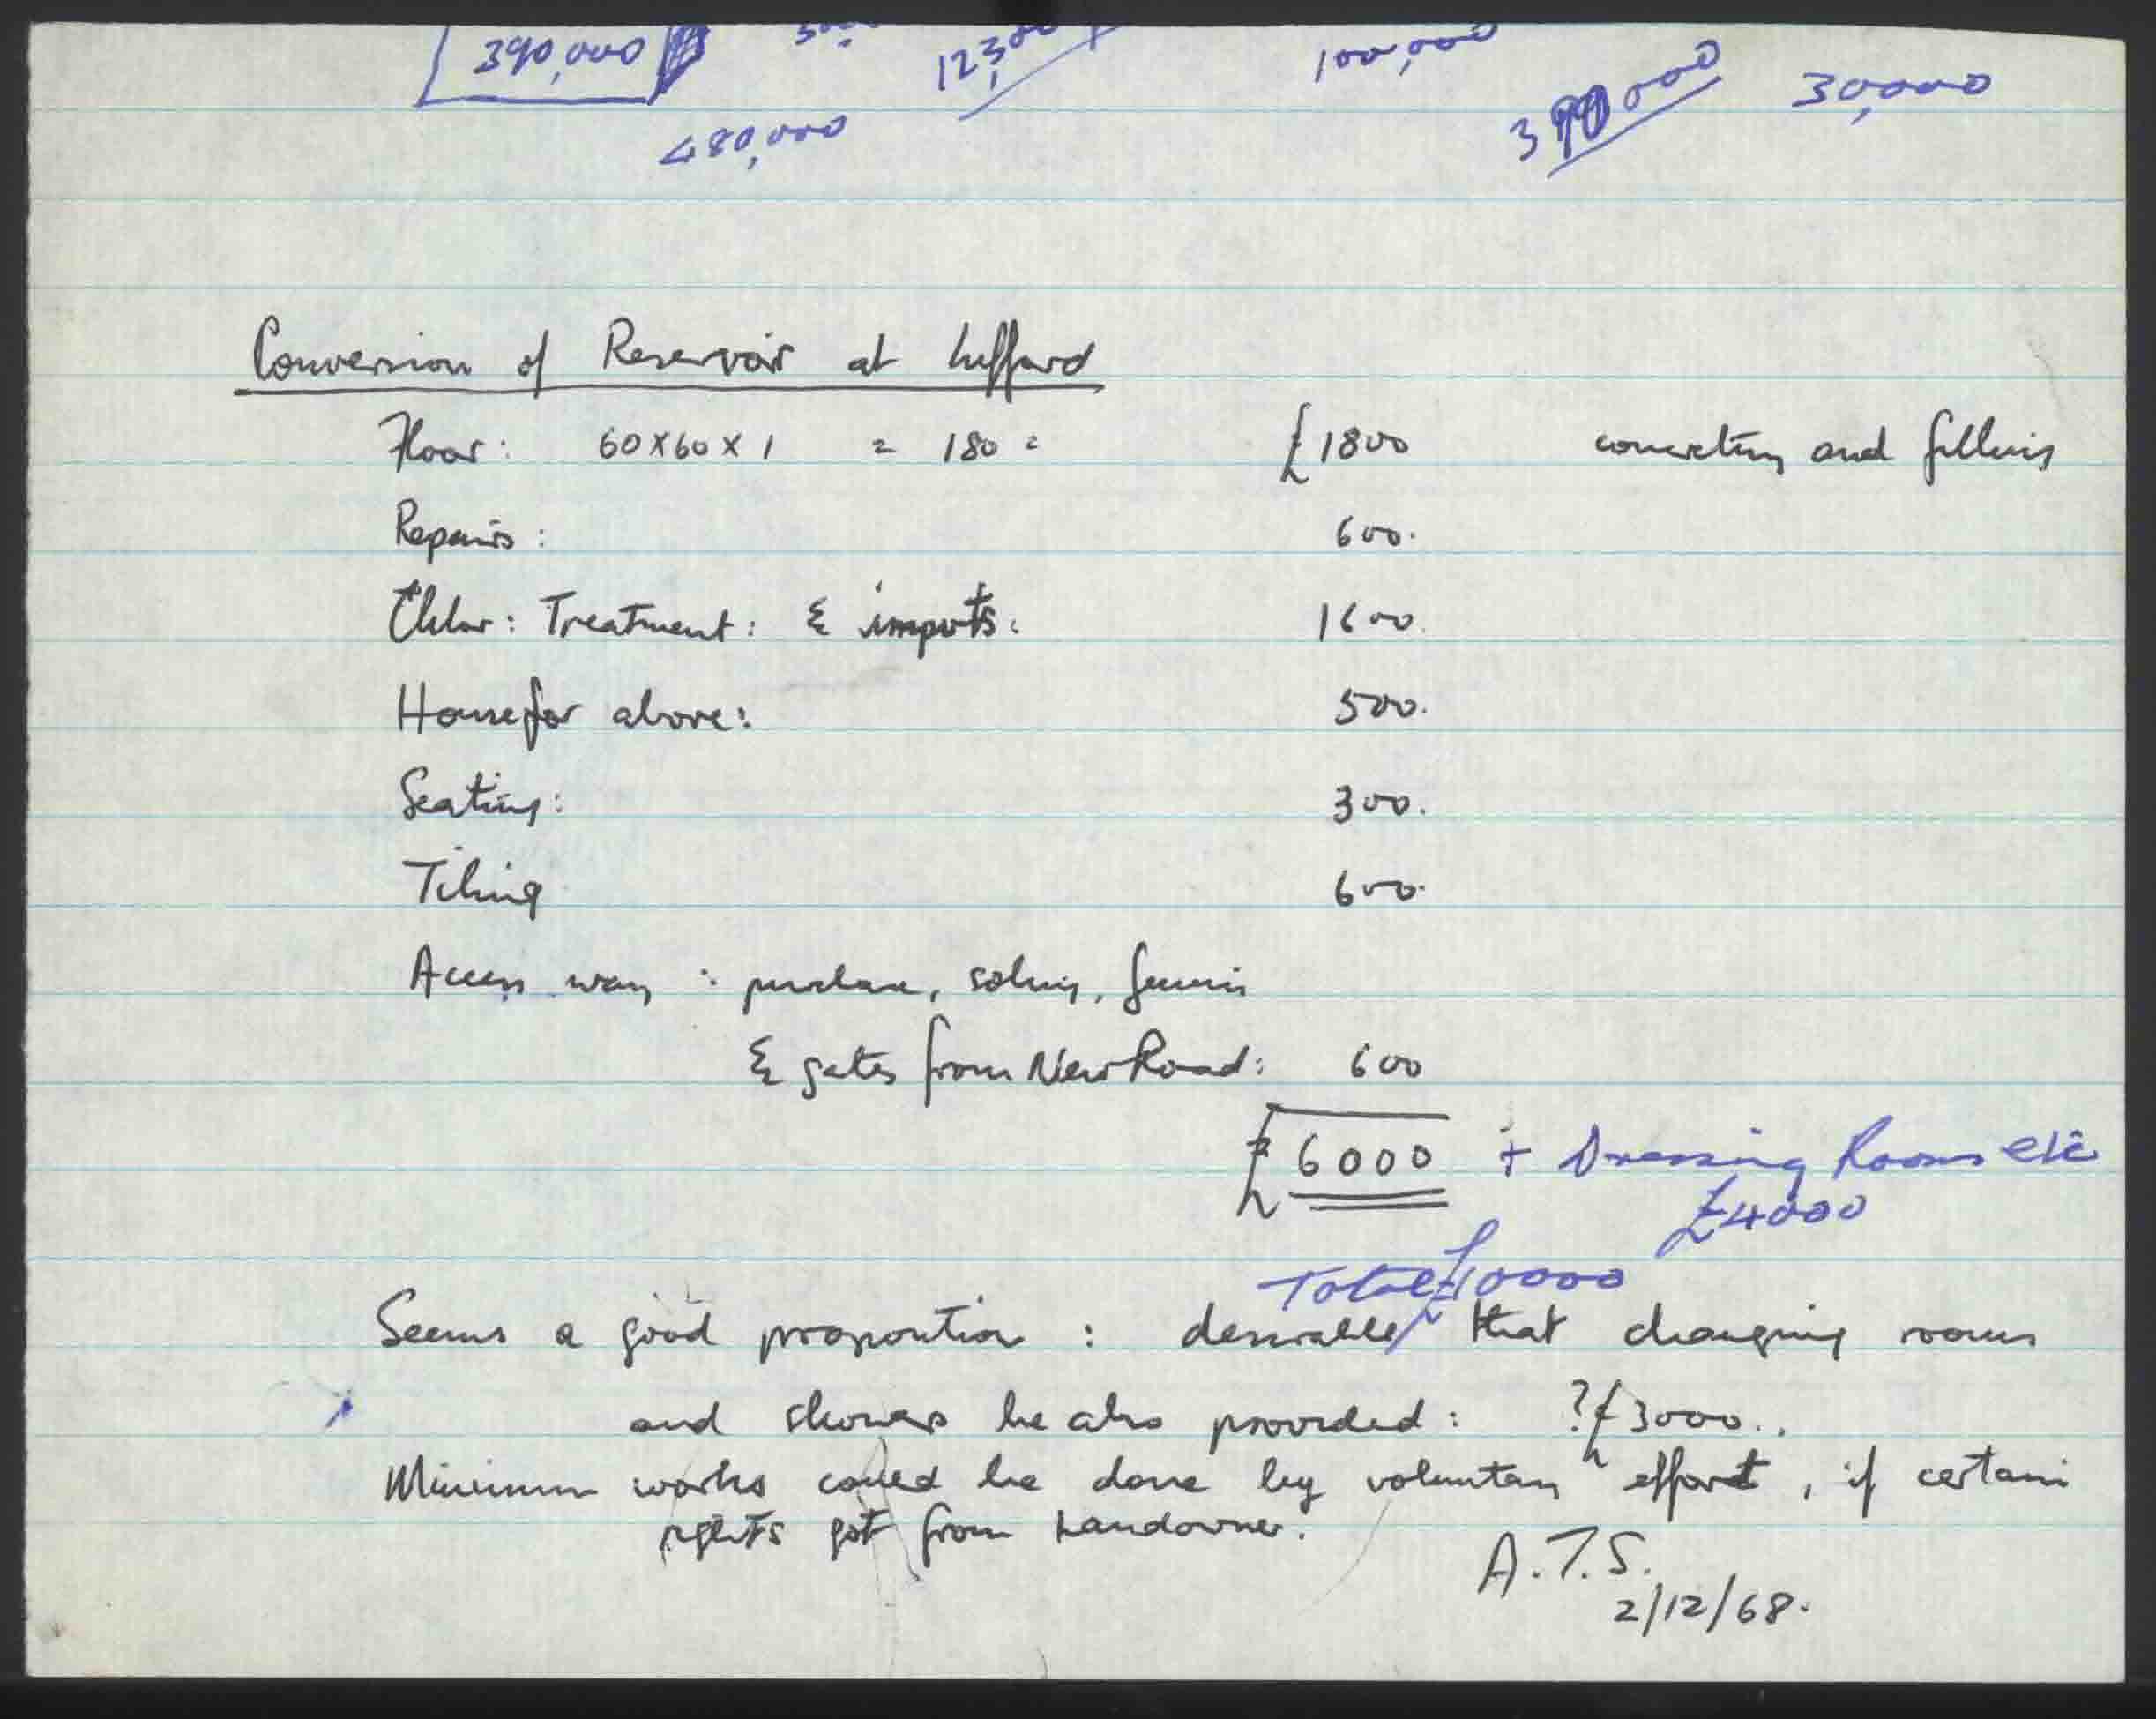 390,000
12,300
100,000
390000
30,000
480,000
Conversion of Reservoir at Lifford
Floor: 60x60x1 = 180 = £1800 concreting and filling
Repairs: 600.
Chlor: Treatment: & imports: 1600.
House for above: 500.
Seating: 300.
Tiling 600.
Access way: purchase, soling, fencing
& gates from New Road: 600
£6000 + Dressing Rooms etc
£4000
Total £10000
Seems a good proportion : desirable that changing rooms
and showers be also provided: ?£3000..
Minimum works could be done by voluntary effort, if certain
rights got from Landowner.
A.T.S.
2/12/68.